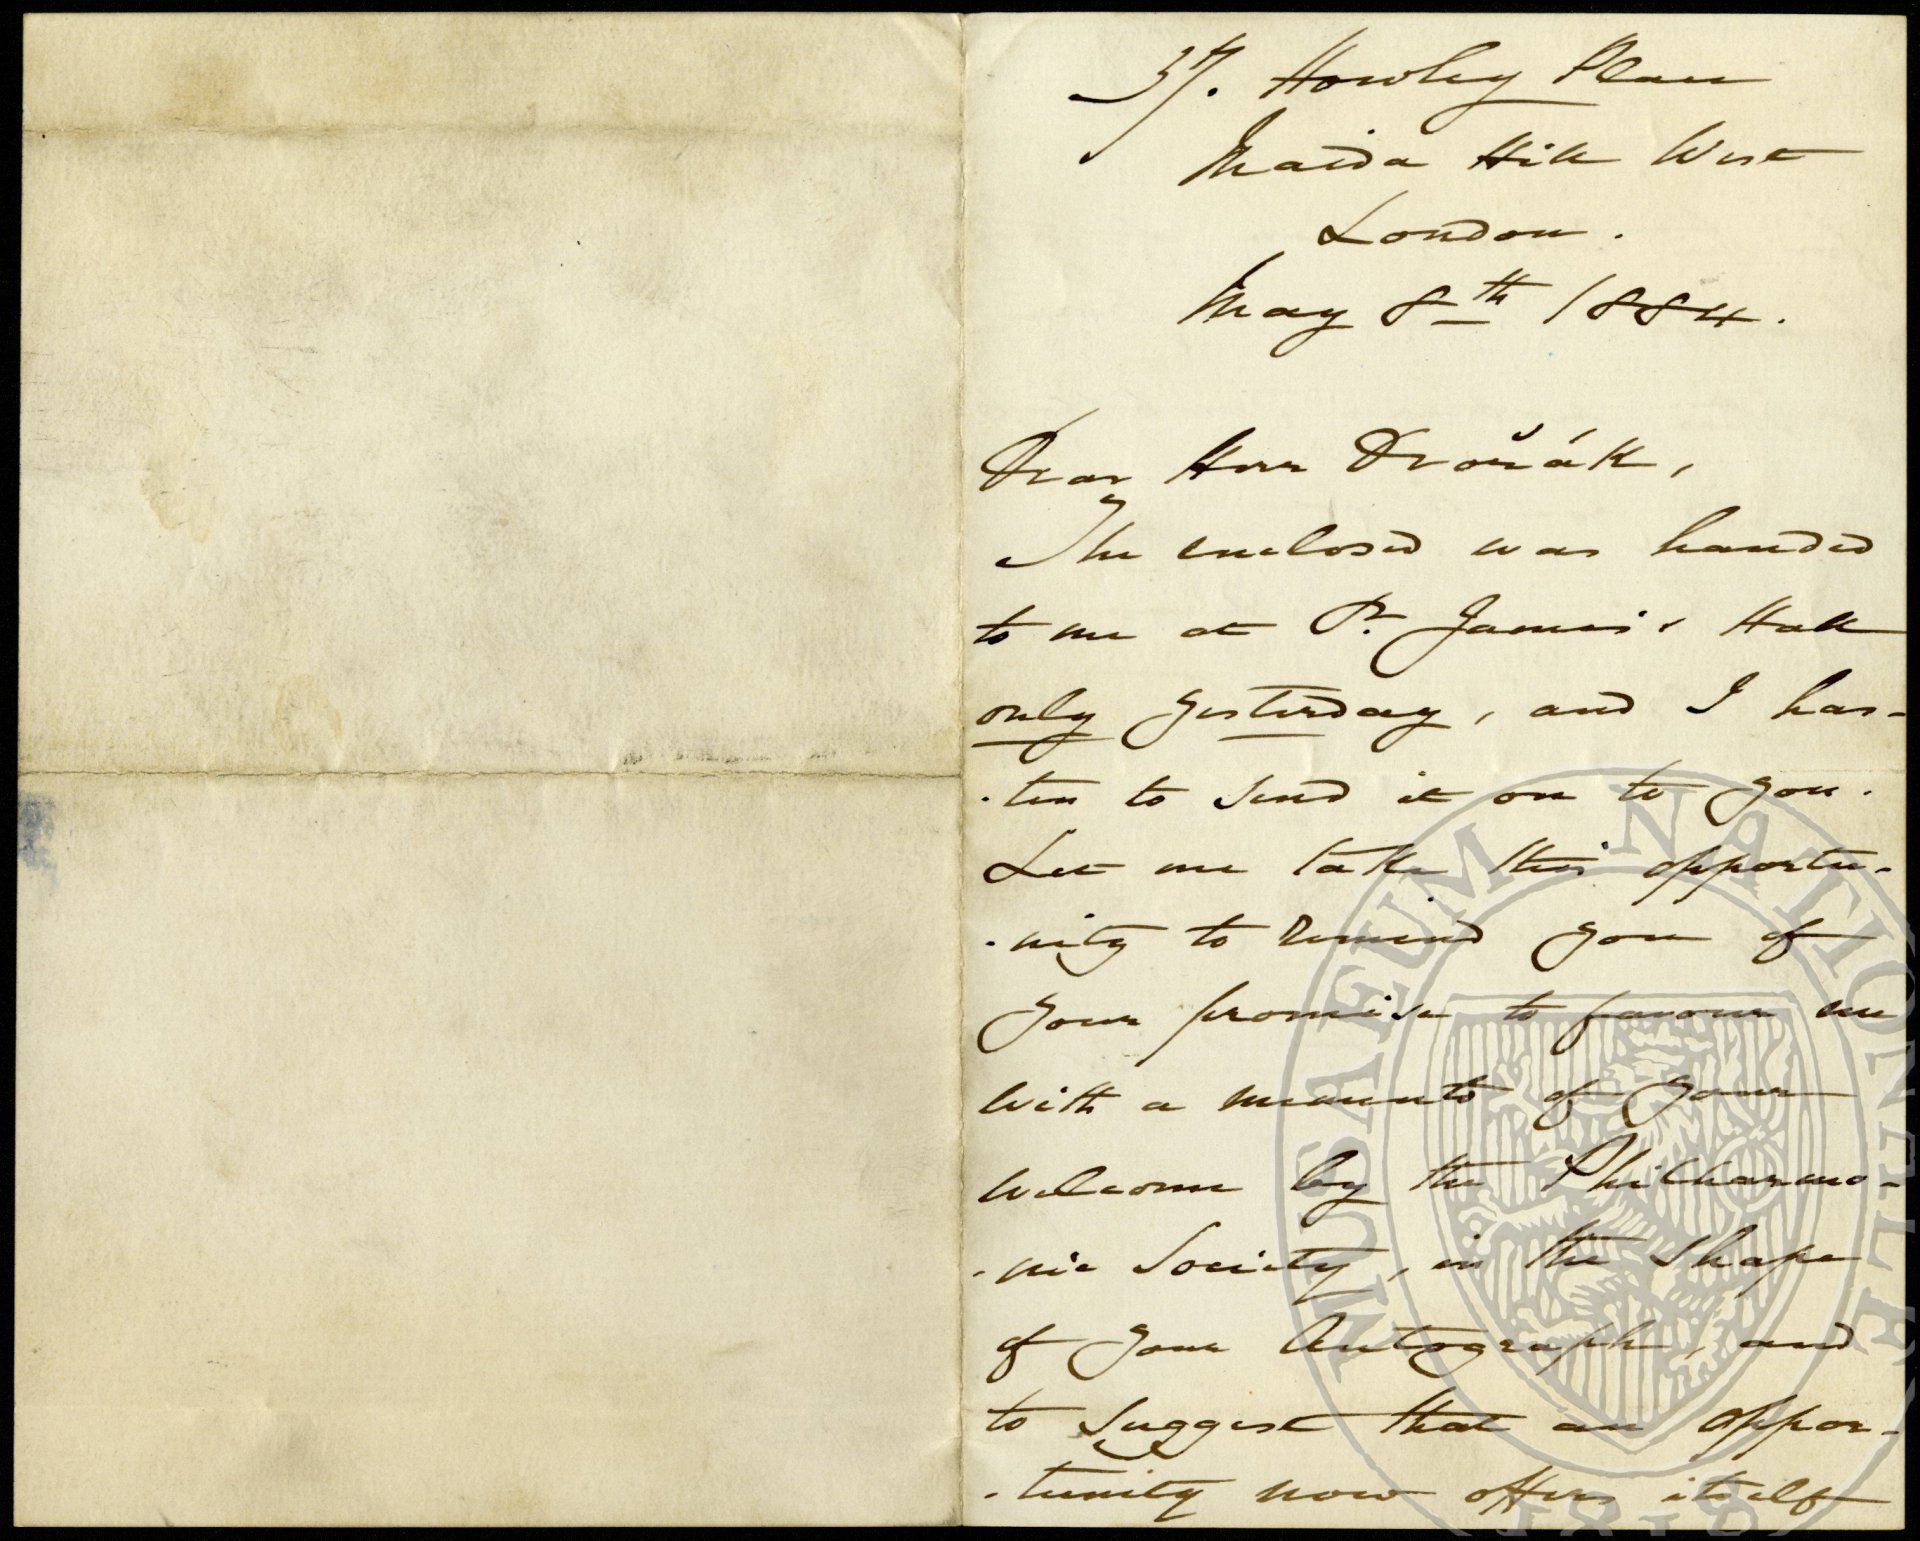 37. Howley Place
Maida Hill West
London.
May 8th 1884.
Dear Herr Dvořák,
The enclosed was handed
to me at St. James's Hall
only yesterday, and I has-
-ten to send it on to you.
Let me take this opportu-
-nity to remind you of
your promise to favour me
with a memento of your
welcome by the Philharmo-
-nic Society, in the shape
of your Autograph, and
to suggest that an oppor-
-tunity now offers itself
MUSAEUM NATIONALE
1818